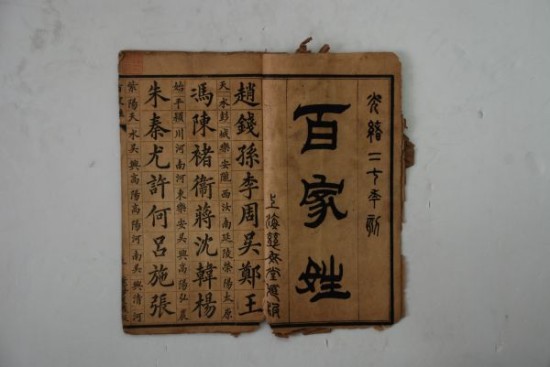 光緒二
百家姓
上海
趙錢孫李周吳鄭王
天水彭城樂安隴西汝南延陵滎陽太原
馮陳褚衛蔣沈韓楊
始平潁川河南河東樂安吳興高陽弘農
朱秦尤許何呂施張
紫陽天水吳興高陽高陽河南吳興清河
百家姓